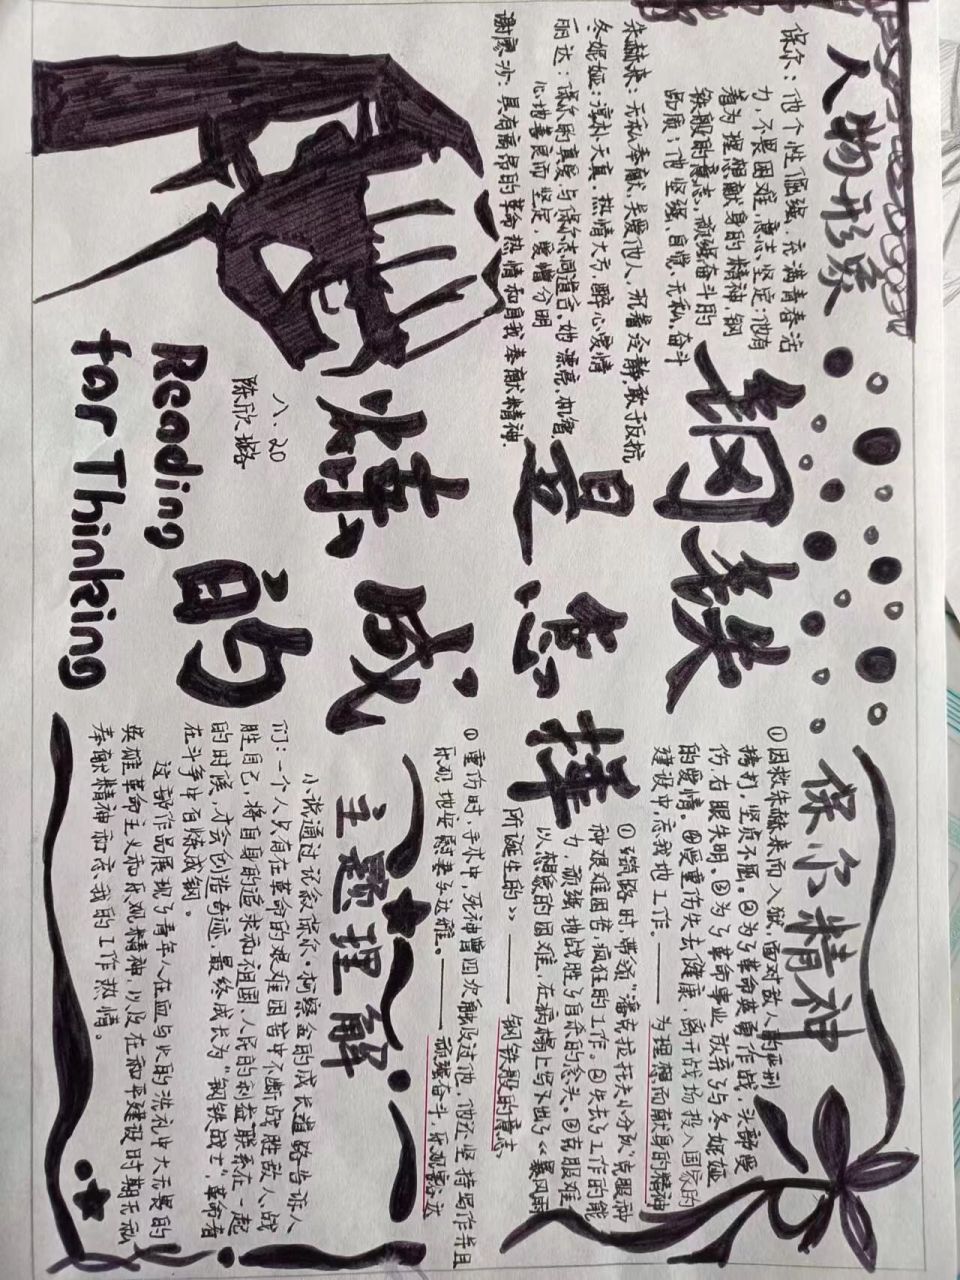 人物形象
保尔：他个性倔强，充满青春活
力，不畏困难，意志坚定；他有
着为理想献身的精神，钢
铁般的意志，顽强奋斗的
品质；他坚强、自觉、无私、奋斗
朱赫来：无私奉献，关爱他人，沉着冷静，敢于反抗
冬妮娅：淳朴天真，热情大方，醉心爱情
丽达：保尔的真爱，与保尔志同道合。她漂亮，机智，
心地善良而坚定，爱憎分明
谢廖沙：具有高昂的革命热情和自我奉献精神.
钢铁
是怎样
炼成
的
八、20
陈欣璐
Reading
for Thinking
保尔精神
①因救朱赫来而入狱，面对敌人的严刑
拷打，坚贞不屈。②为了革命英勇作战，头部受
伤右眼失明。③为了革命事业放弃了与冬妮娅
的爱情。④受重伤失去健康，离开战场投入国家的
建设中，忘我地工作。——为理想而献身的精神
①筑路时，带领“潘克拉托夫小分队”克服种
种艰难困苦，疯狂的工作。②失去了工作的能
力，顽强地战胜了自杀的念头。③克服难
以想象的困难，在病榻上写出了《暴风雨
所诞生的》——钢铁般的意志
①重伤时，手术中，死神曾四次触及过他，他还坚持写作并且
乐观地安慰妻子达雅。——顽强奋斗，乐观豁达
主题理解
小说通过记叙保尔·柯察金的成长道路告诉人
们：一个人只有在革命的艰难困苦中不断战胜敌人、战
胜自己，将自身的追求和祖国、人民的利益联系在一起
的时候，才会创造奇迹，最终成长为“钢铁战士”，革命者
在斗争中百炼成钢。
这部作品展现了青年人在血与火的洗礼中大无畏的
英雄革命主义和乐观精神，以及在和平建设时期无私
奉献精神和忘我的工作热情。